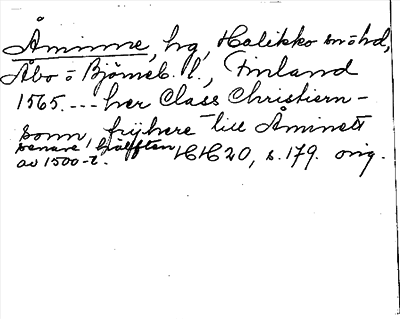 Åminne, hg, Halikko sn o hd,
Åbo o Björneb. l., Finland
1565. --- her Class Christiern-
sonn, frijhere till Åminett
senare hälften HH 20, s. 179. orig.
av 1500-t.